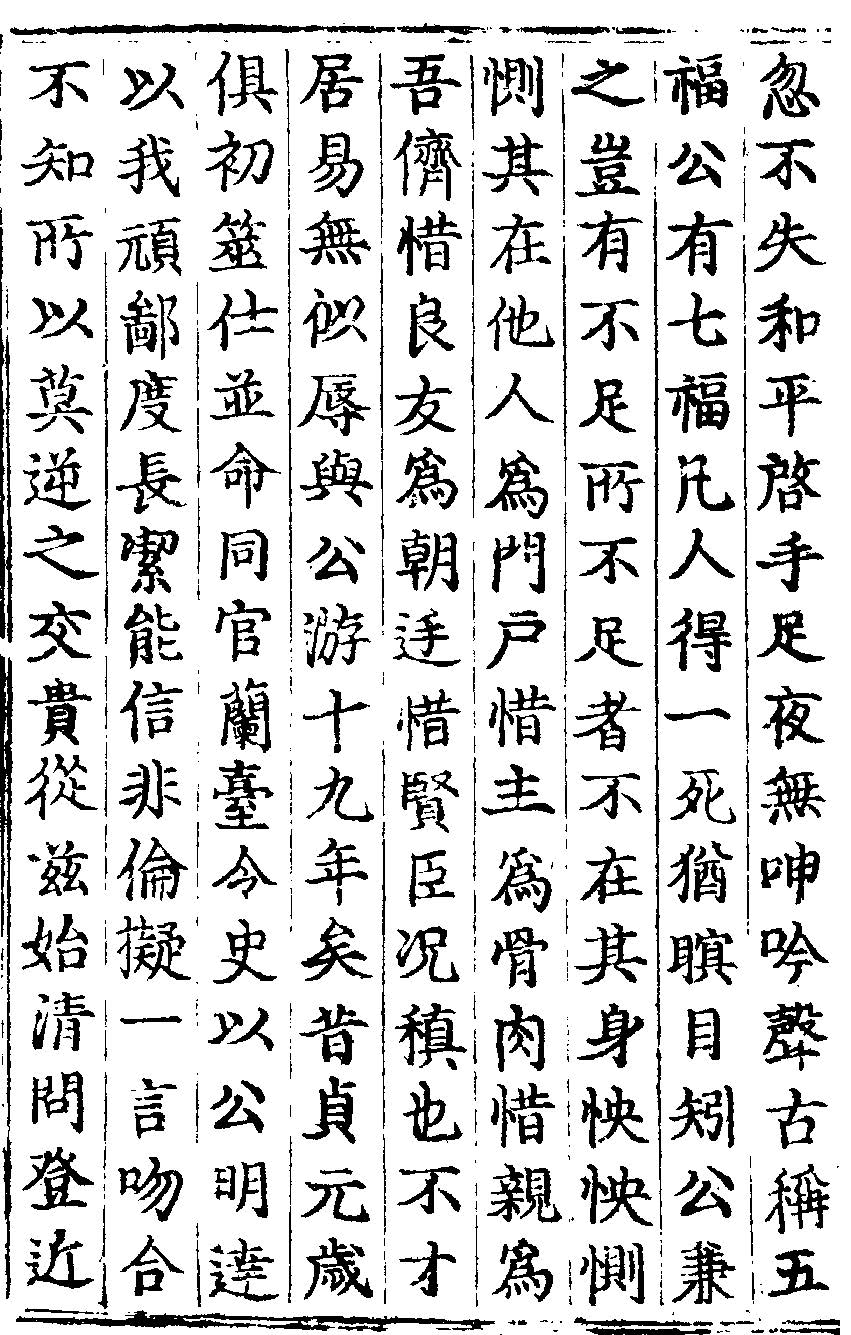 忽不失和平啓手足夜無呻吟聲古稱五
福公有七福凡人得一死猶瞑目矧公兼
之豈有不足所不足者不在其身怏怏惻
惻其在他人為門戸惜主為骨肉惜親為
吾儕惜良友為朝廷惜賢臣况稹也不才
居易無似辱與公游十九年矣昔貞元歳
俱初筮仕並命同官蘭臺令史以公明達
以我頑鄙度長絜能信非倫擬一言吻合
不知所以莫逆之交貴從兹始清問登近